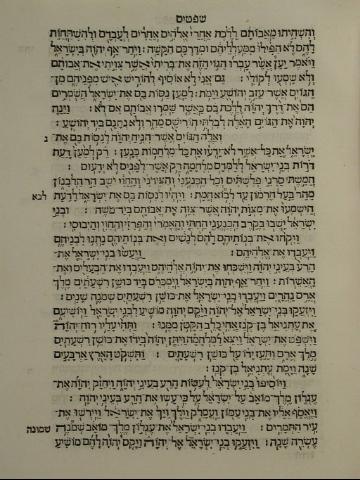 שפטים
והשחיתו מאבותם ללכת אחרי אלהים אחרים לעבדם ולהשתחות
להם לא הפילו ממעלליהם ומדרכם הקשה : ויחר אף יהוה בישראל
ויאמר יען אשר עברו הגוי הזה את בריתי אשר צויתי את אבותם
ולא שמעו לקולי : גם אני לא אוסיף להוריש איש מפניהם מן
הגוים אשר עזב יהושע וימת : למען נסות בם את ישראל השמרים
הם את דרך יהוה ללכת בם כאשר שמרו אבותם אם לא : וינח
יהוה את הגוים האלה לבלתי הורישם מהר ולא נתנם ביד יהושע :
ג ואלה הגוים אשר הניח יהוה לנסות בם את
ישראל את כל אשר לא ידעו את כל מלחמות כנען : רק למען דעת
דרות בני ישראל ללמדם מלחמה רק אשר לפנים לא ידעום :
חמשת סרני פלשתים וכל הכנעני והצידני והחוי ישב הר הלבנון
מהר בעל חרמון עד לבוא חמת : ויהיו לנסות בם את ישראל לדעת
הישמעו את מצות יהוה אשר צוה את אבותם ביד משה : ובני
ישראל ישבו בקרב הכנעני החתי והאמרי והפרזי והחוי והיבוסי :
ויקחו את בנותיהם להם לנשים ואת בנותיהם נתנו לבניהם
ויעבדו את אלהיהם : ויעשו בני ישראל את
הרע בעיני יהוה וישכחו את יהוה אלהיהם ויעבדו את הבעלים ואת
האשרות : ויחר אף יהוה בישראל וימכרם ביד כושן רשעתים מלך
ארם נהרים ויעבדו בני ישראל את כושן רשעתים שמנה שנים :
ויזעקו בני ישראל אל יהוה ויקם יהוה מושיע לבני ישראל ויושיעם
את עתניאל בן קנז אחי כלב הקטן ממנו : ותהי עליו רוח יהוה
וישפט את ישראל ויצא למלחמה ויתן יהוה בידו את כושן רשעתים
מלך ארם ותעז ידו על כושן רשעתים : ותשקט הארץ ארבעים
שנה וימת עתניאל בן קנז :
ויוסיפו בני ישראל לעשות הרע בעיני יהוה ויחזק יהוה את
עגלון מלך מואב על ישראל על כי עשו את הרע בעיני יהוה :
ויאסף אליו את בני עמון ועמלק וילך ויך את ישראל ויירשו את
עיר התמרים : ויעבדו בני ישראל את עגלון מלך מואב שמנה שמונה
עשרה שנה : ויזעקו בני ישראל אל יהוה ויקם יהוה להם מושיע